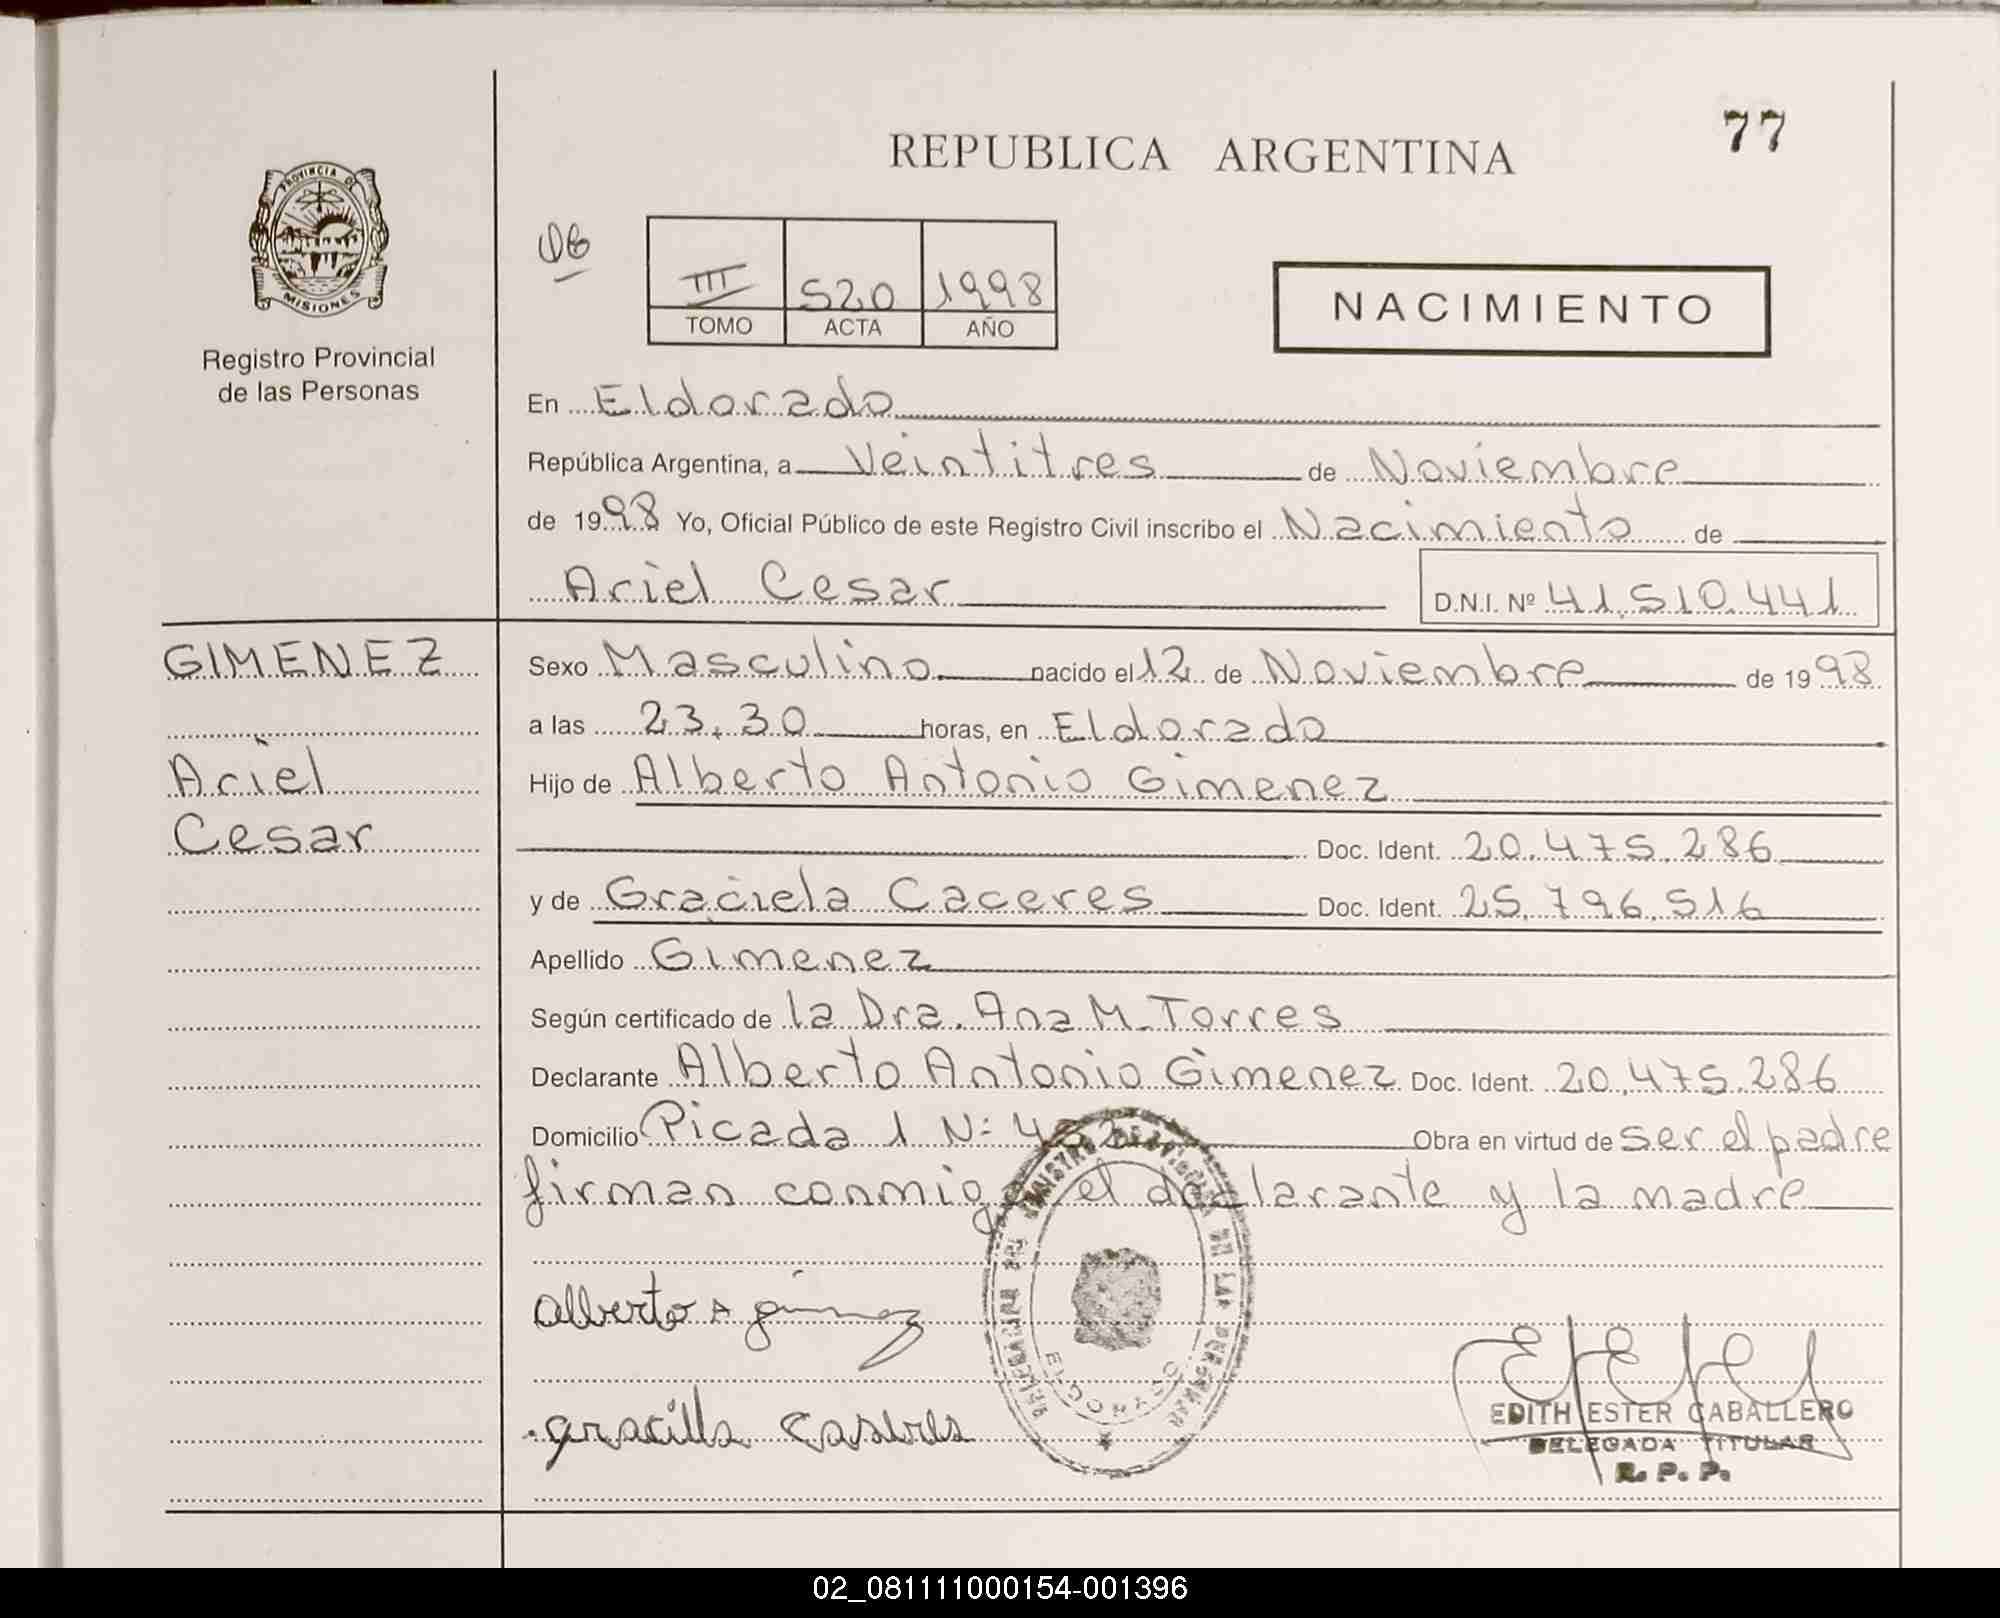 77
REPUBLICA ARGENTINA
PROVINCIA DE
MISIONES
Registro Provincial
de las Personas
III 520 1998
TOMO ACTA AÑO
NACIMIENTO
En Eldorado
República Argentina, a Veintitres de Noviembre
de 1998 Yo, Oficial Público de este Registro Civil inscribo el Nacimiento de
Ariel Cesar D.N.I. Nº 41.510.441
GIMENEZ
Ariel
Cesar
Sexo Masculino nacido el 12 de Noviembre de 1998
a las 23.30 horas, en Eldorado
Hijo de Alberto Antonio Gimenez
Doc. Ident. 20.475.286
y de Graciela Caceres Doc. Ident. 25.796.516
Apellido Gimenez
Según certificado de la Dra. Ana M. Torres
Declarante Alberto Antonio Gimenez Doc. Ident. 20.475.286
Domicilio Picada 1 Nº Obra en virtud de ser el padre
firman conmigo el declarante y la madre
alberto A gimenez
EDITH ESTER CABALLERO
DELEGADA TITULAR
R. P. P.
ELDORADO
02_081111000154-001396